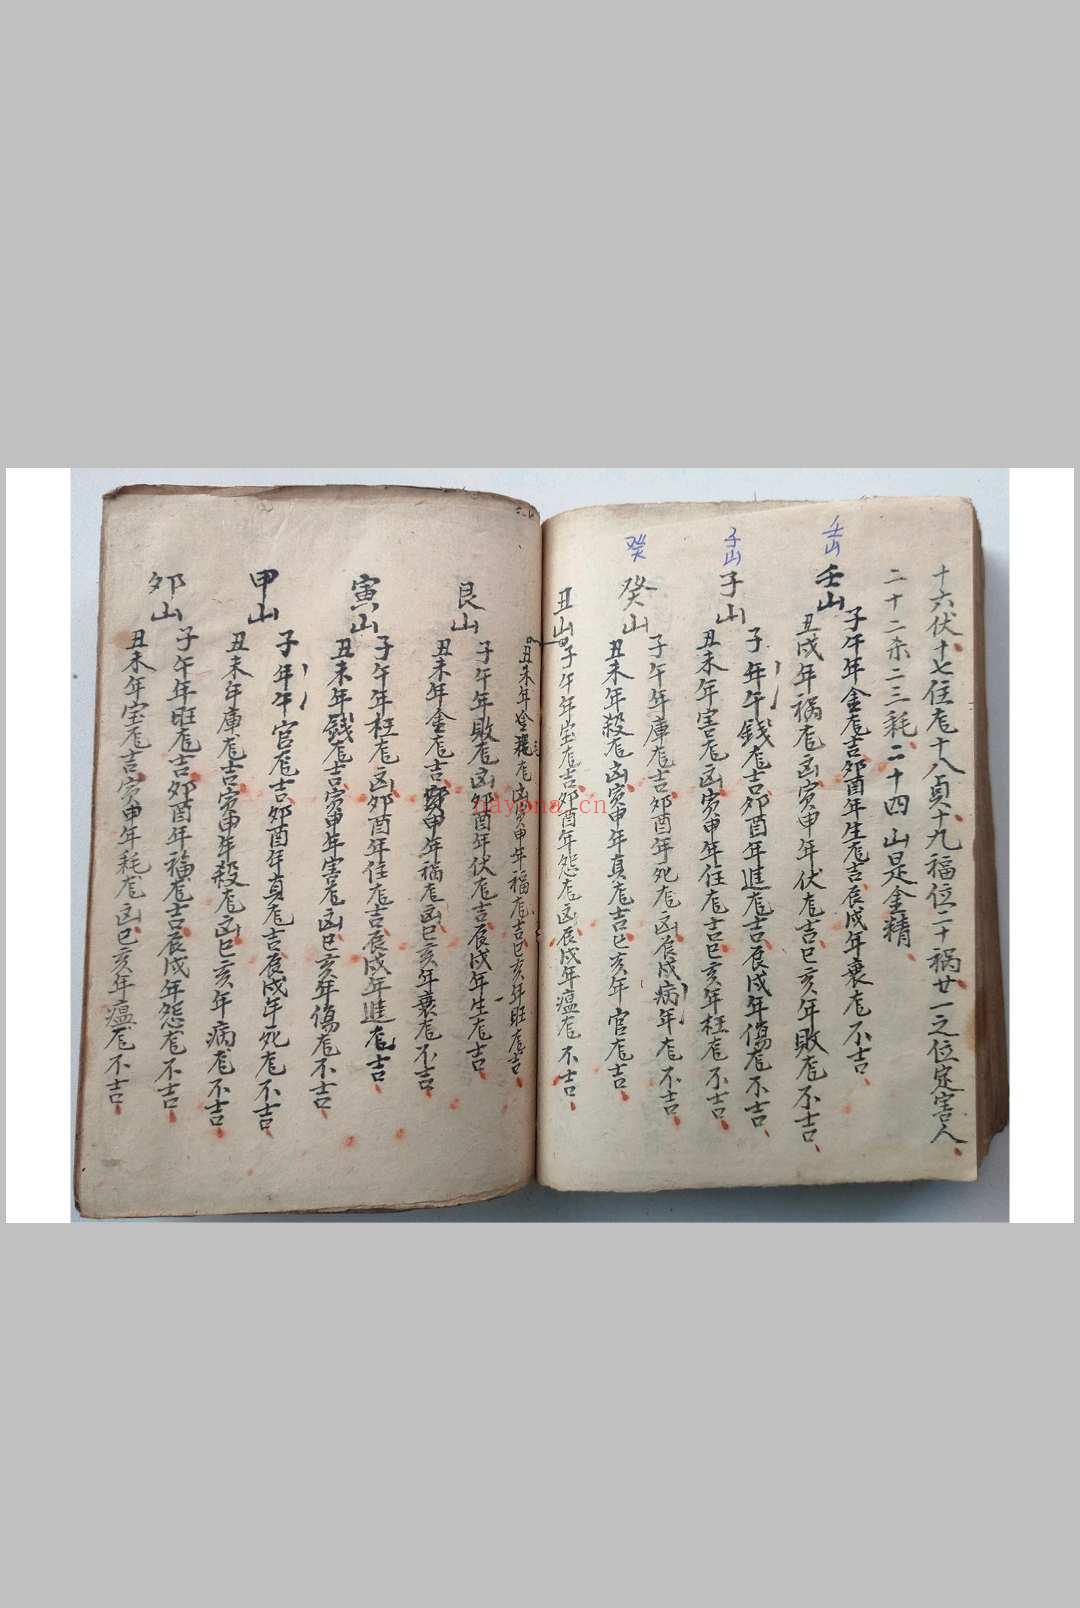 十六伏十七住庀十八貞十九福位二十禍廿一之位定害人
二十二杀二三耗二十四山是金精
壬山
壬山
子午年金庀吉夘酉年生庀吉辰戌年衰庀不吉
丑戌年禍庀凶寅申年伏庀吉巳亥年敗庀不吉
子山
子山
子年午錢庀吉夘酉年進庀吉辰戌年傷庀不吉
丑未年害庀凶寅申年住庀吉巳亥年枉庀不吉
癸
癸山
子午年庫庀吉夘酉年死庀凶辰戌病年庀不吉
丑未年殺庀凶寅申年真庀吉巳亥年官庀吉
丑山
子午年宝庀吉夘酉年怨庀凶辰戌年瘟庀不吉
丑未年耗庀凶寅申年福庀吉巳亥年旺庀吉
艮山
子午年敗庀凶夘酉年伏庀吉辰戌年生庀吉
丑未年金庀吉寅申年禍庀凶巳亥年衰庀不吉
寅山
子午年枉庀凶夘酉年住庀吉辰戌年進庀吉
丑未年錢庀吉寅申年害庀凶巳亥年傷庀不吉
甲山
子年午官庀吉夘酉年真庀吉辰戌年死庀不吉
丑未年庫庀吉寅申年殺庀凶巳亥年病庀不吉
夘山
子午年旺庀吉夘酉年福庀吉辰戌年怨庀不吉
丑未年宝庀吉寅申年耗庀凶巳亥年瘟庀不吉
nayona.cn